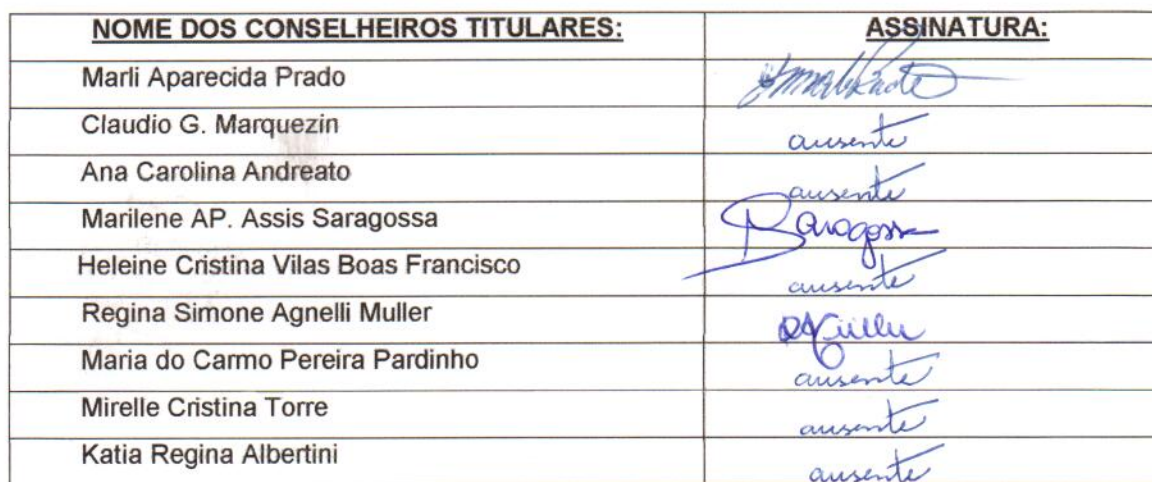 NOME DOS CONSELHEIROS TITULARES: ASSINATURA:
Marli Aparecida Prado
Claudio G. Marquezin ausente
Ana Carolina Andreato ausente
Marilene AP. Assis Saragossa Saragossa
Heleine Cristina Vilas Boas Francisco ausente
Regina Simone Agnelli Muller
Maria do Carmo Pereira Pardinho ausente
Mirelle Cristina Torre ausente
Katia Regina Albertini ausente